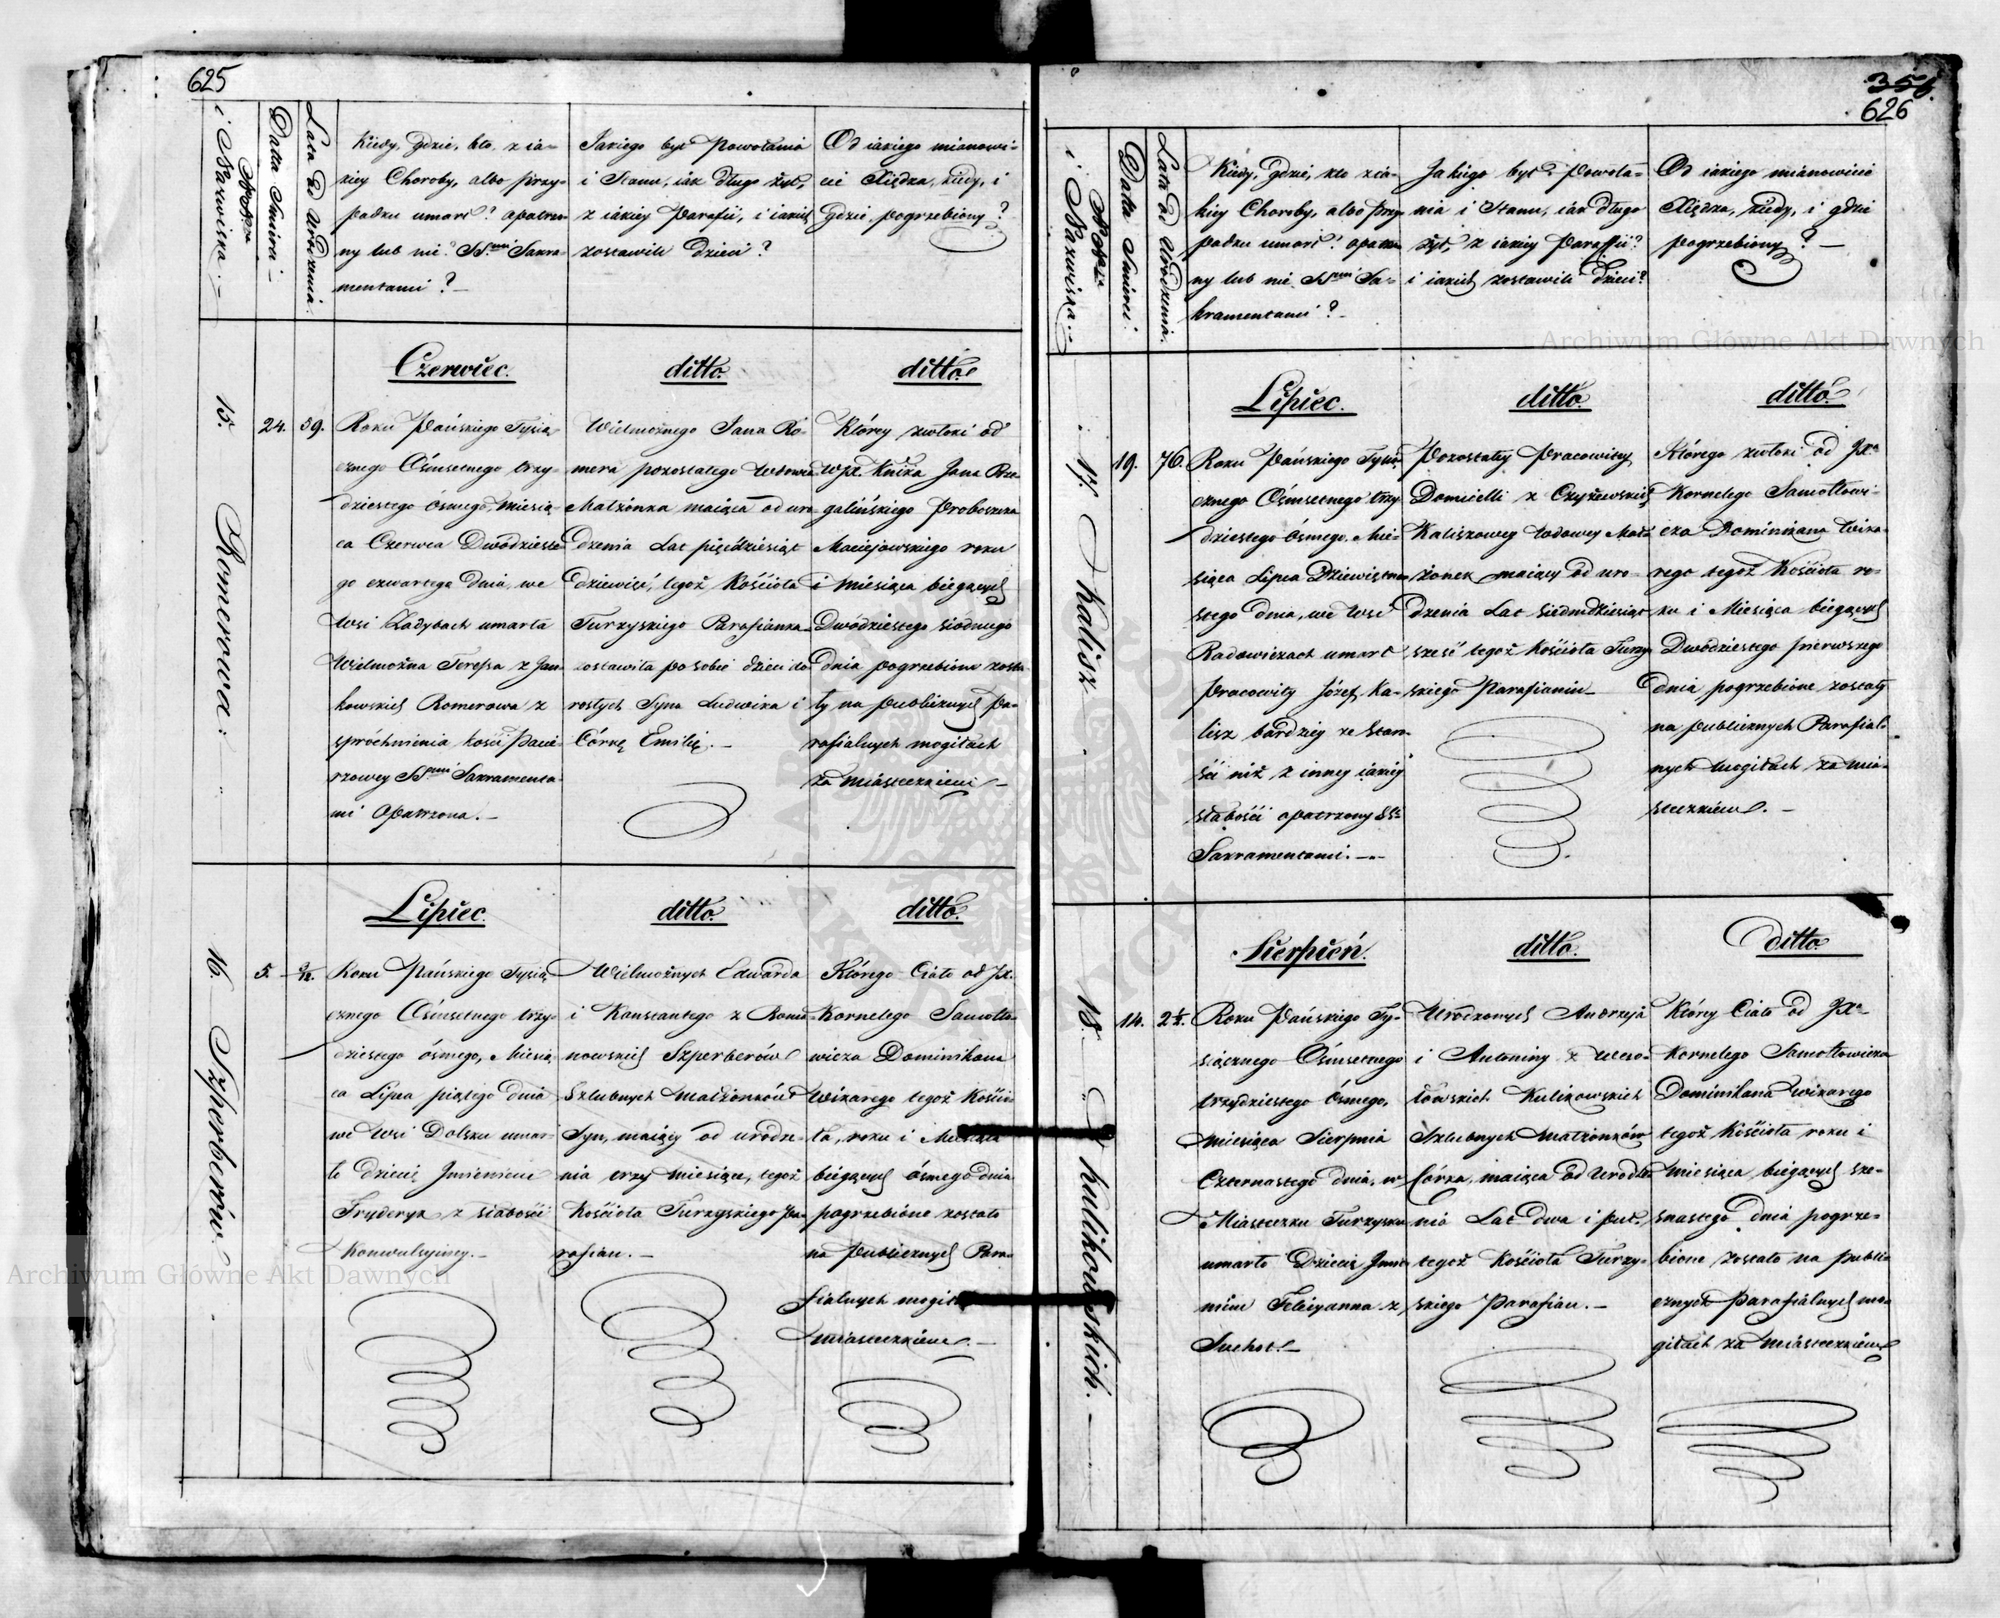 625
Nomera
i Nazwiska.
Datta Smierci
Lata od Urodzenia.
Kiedy, gdzie, kto, z ia-
kiey Choroby, albo przy-
padku umarł? opatrzo-
ny lub nie? SSmi Sakra-
mentami?
Jakiego był Powołania
i Stanu, iak długo żył,
z iakiey Parafii, i iakich
zostawili Dzieci?
Od iakiego mianowi-
cie Xiędza, kiedy, i
gdzie pogrzebiony?
Czerwiec.
ditto.
ditto.
15.
Romerowa.
24.
59.
Roku Pańskiego Tysią-
cznego Ośmsetnego trzy-
dziestego ósmego, miesią-
ca Czerwca Dwódzieste-
go czwartego dnia, we
Wsi Zadybach umarła
Wielmożna Teressa z Jan-
kowskich Romerowa z
spróchnienia kości Pacie-
rzowey SSmi Sakramenta-
mi opatrzona.
Wielmożnego Jana Ro-
mera pozostałego Wdowca
Małżonka maiąca od uro-
dzenia Lat pięćdziesiąt
dziewięć, tegoż Kościoła
Turzyskiego Parafianka
zostawiła po sobie dzieci do-
rosłych Syna Ludwika i
Córkę Emilię.
Którey zwłoki od
WJX. Knżza Jana Roz-
galińskiego Proboszcza
Maciejowskiego roku
i miesiąca bieżących
Dwódziestego siódmego
Dnia pogrzebione zosta-
ły na Publicznych Pa-
rafialnych mogiłach
za miasteczkiem
Lipiec.
ditto.
ditto.
16.
Szperberów.
5.
3/12.
Roku Pańskiego Tysią-
cznego Ośmsetnego trzy-
dziestego ósmego, Miesią-
ca Lipca piątego dnia
we Wsi Dolsku umar-
ło dziecię Jmieniem
Fryderyk z słabości
Konwulsyiney.
Wielmożnych Edwarda
i Konstantego z Romа-
nowskich Szperberów
Szlubnych Małżonków
Syn, maiący od urodze-
nia trzy miesiące, tegoż
Kościoła Turzyskiego Pa-
rafian.
Którego Ciało od JX.
Kornelego Samotło-
wicza Dominikana
Wikarego tegoż Kościo-
ła, roku i Miesiąca
bieżących ósmego dnia
pogrzebione zostało
na Publicznych Para-
fialnych mogił
miasteczkiem.
626
Nomera
i Nazwiska.
Datta Smierci.
Lata od Urodzenia.
Kiedy, gdzie, kto z ia-
kiey Choroby, albo przy-
padku umarł? opatrzo-
ny lub nie SSmi Sa-
kramentami?
Jakiego był? Powoła-
nia i Stanu, iak długo
żył, z iakiey Parafii?
i iakich zostawili Dzieci?
Od iakiego mianowicie
Xiędza, kiedy, i gdzie
pogrzebiony?
Lipiec.
ditto.
ditto.
17.
Kalisz.
19.
76.
Roku Pańskiego Tysią-
cznego Ośmsetnego trzy-
dziestego ósmego. Mie-
siąca Lipca Dziewiętna-
stego dnia, we Wsi
Radowiczach umarł
Pracowity Józef Ka-
lisz bardziey ze staro-
ści niż z inney iakiey
słabości opatrzony SS.
Sakramentami.
Pozostały Pracowitey
Domicelli z Czyżewskich
Kaliszowey Wdowey Mał-
żonek maiący od uro-
dzenia Lat siedmdziesiąt
sześć tegoż Kościoła Turzy-
skiego Parafianin
Którego zwłoki od JXa
Kornelego Samotłowi-
cza Dominikana Wika-
rego tegoż Kościoła ro-
ku i Miesiąca bieżących
Dwódziestego pierwszego
dnia pogrzebione zostały
na Publicznych Parafial-
nych mogiłach za mia-
steczkiem.
Sierpień.
ditto.
ditto
18.
Kulikowskich.
14.
2½.
Roku Pańskiego Ty-
siącznego Ośmsetnego
trzydziestego Ósmego,
miesiąca Sierpnia
Czternastego dnia, w
Miasteczku Turzysku
umarło Dziecię Jmie-
niem Felicyanna z
Suchot.
Urodzonych Andrzeja
i Antoniny z Weso-
łowskich Kulikowskich
Szlubnych Małżonków
Córka, maiąca od Urodze-
nia Lat dwa i puł,
tegoż Kościoła Turzy-
skiego Parafian.
Którey Ciało od JXa
Kornelego Samotłowicza
Dominikana Wikarego
tegoż Kościoła roku i
miesiąca bieżących sze-
snastego dnia pogrze-
bione zostało na publi-
cznych Parafialnych mo-
giłach za miasteczkiem
Archiwum Główne Akt Dawnych
Archiwum Główne Akt Dawnych